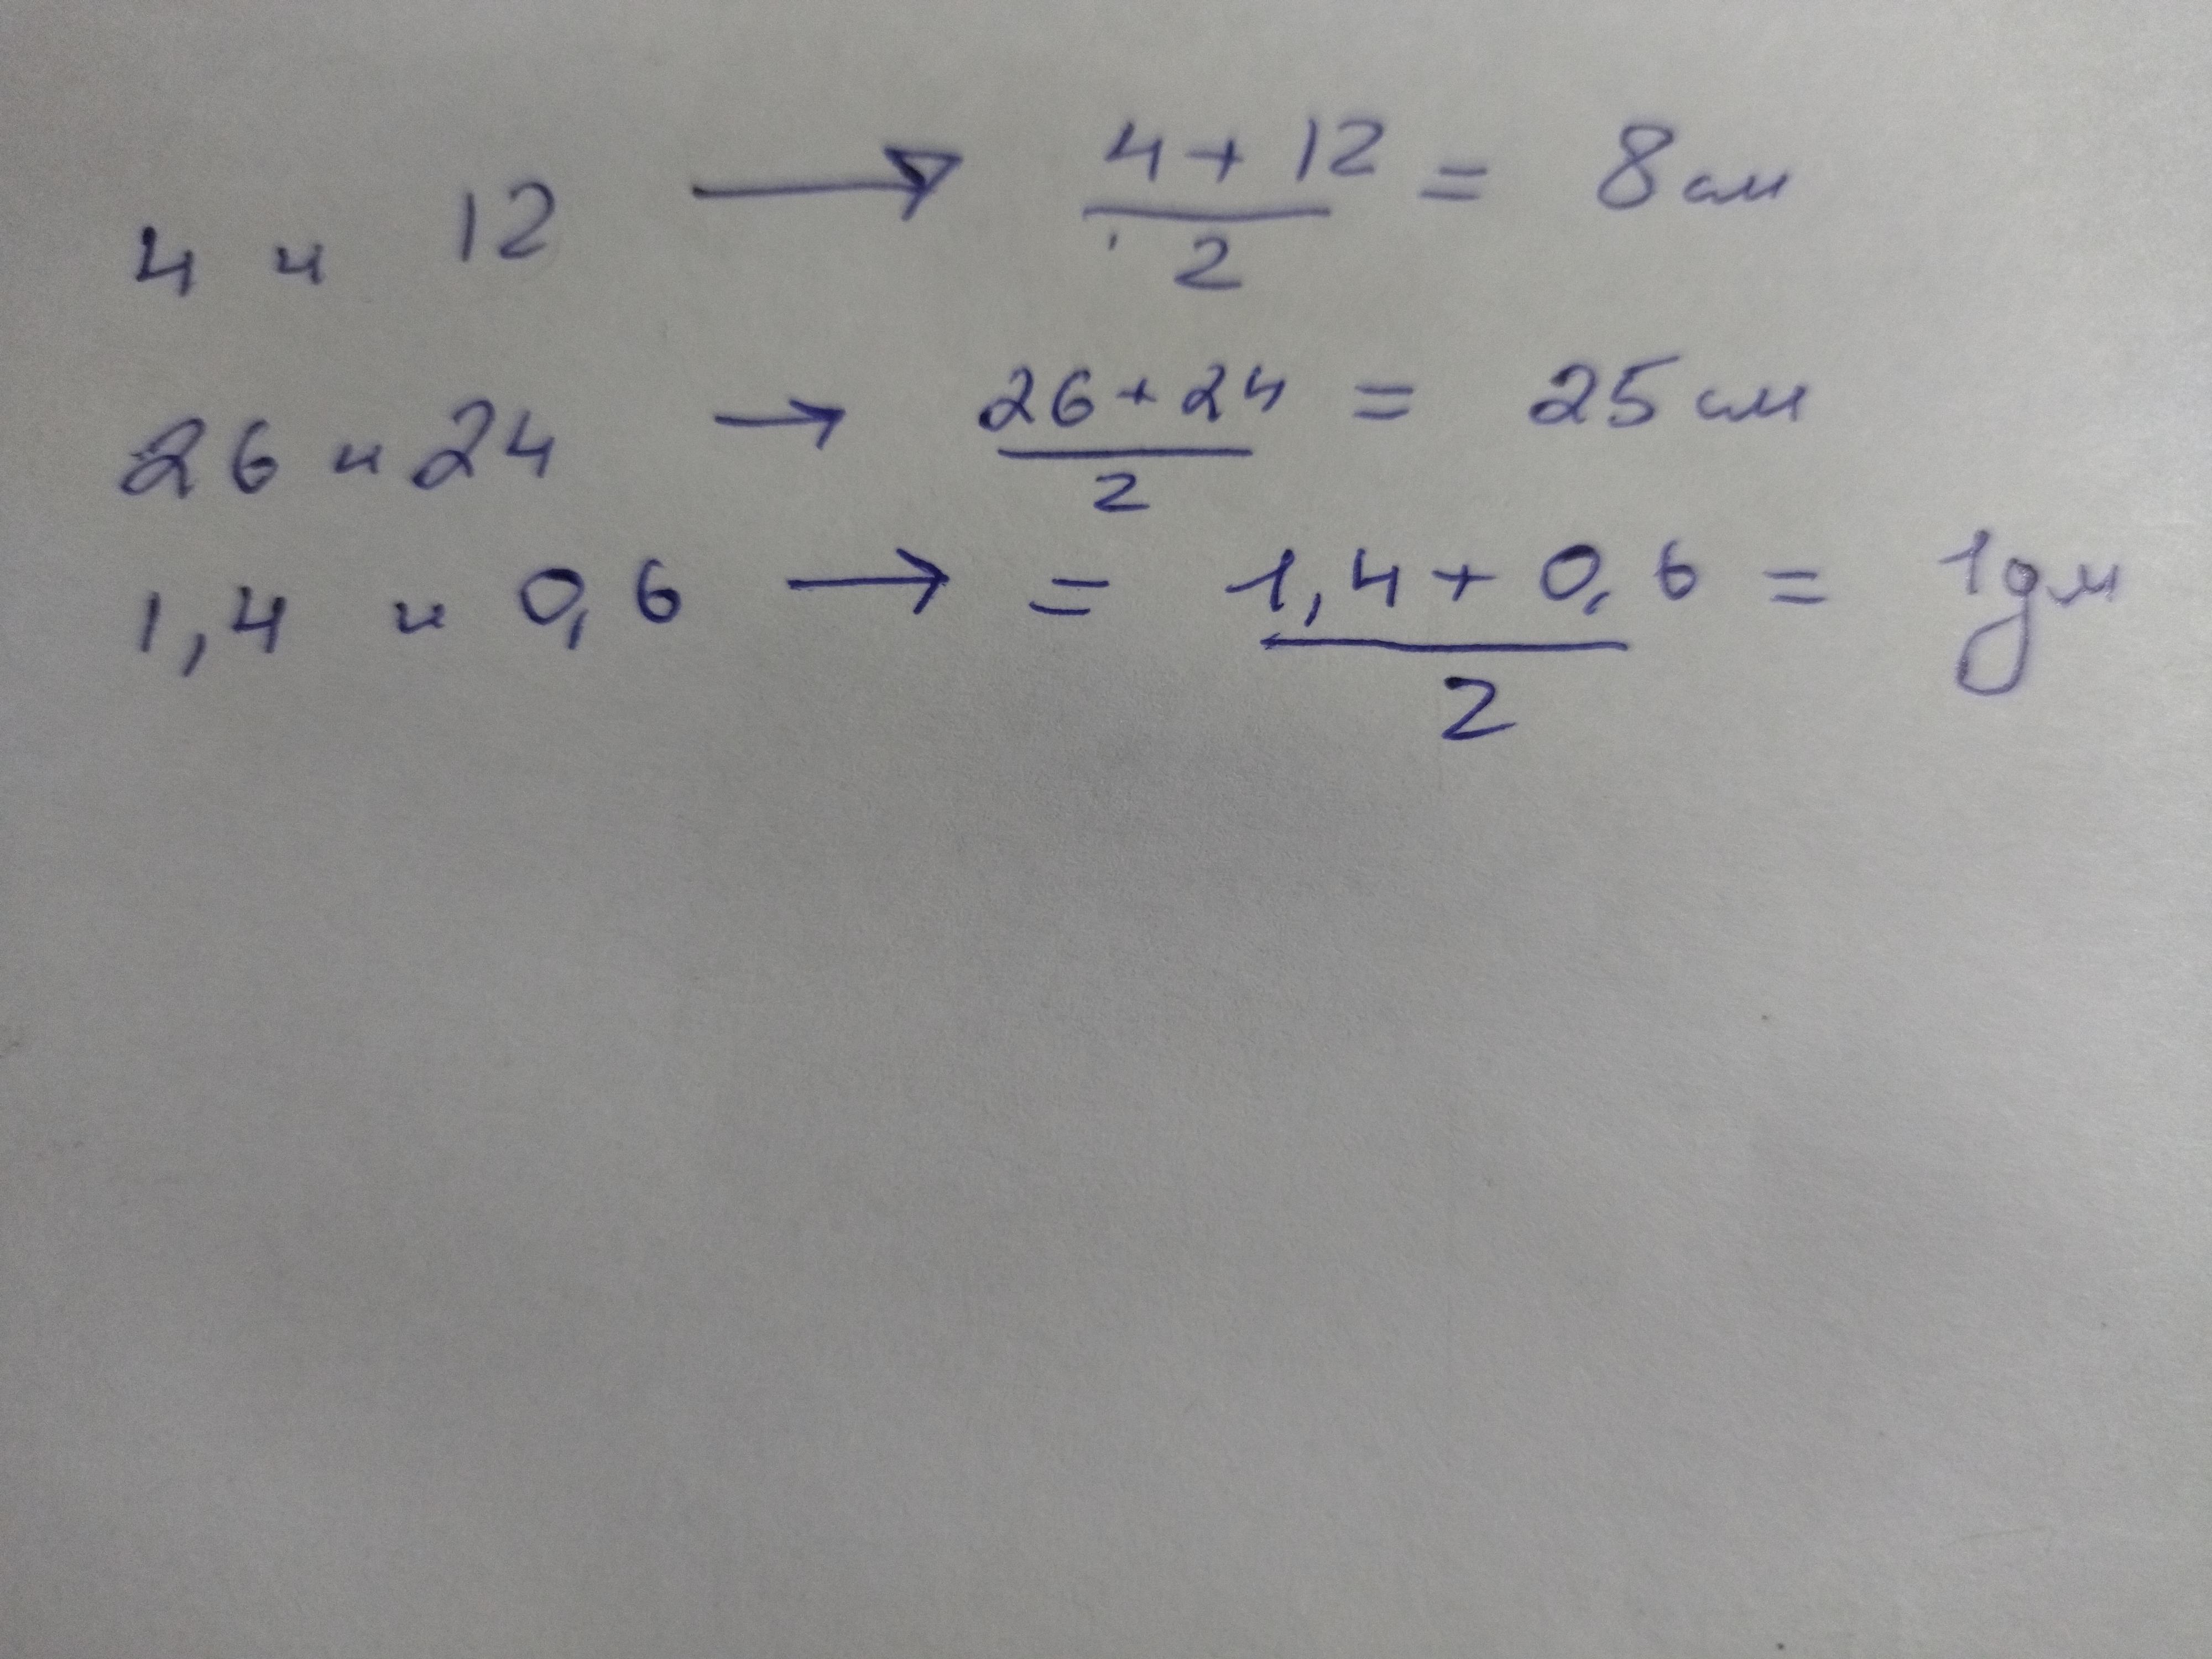 4 и 12 → (4 + 12)/2 = 8 см
26 и 24 → (26 + 24)/2 = 25 см
1,4 и 0,6 → = (1,4 + 0,6)/2 = 1 дм